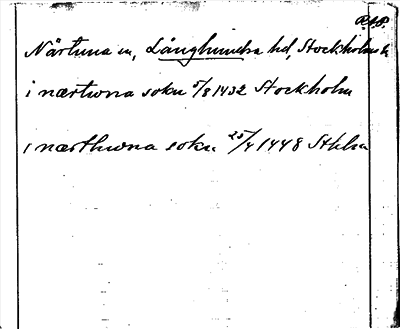 R.A.P.
Närtuna sn, Långhundra hd, Stockholms l.
i nærtwna sokn 5/8 1432 Stockholm
i nærthwna sokn 25/4 1448 Sthlm